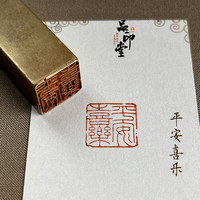 品印堂
平安喜乐
平安喜樂